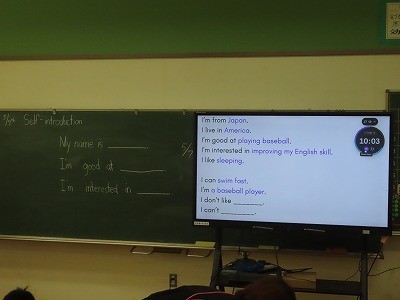 Self-introduction
My name is ______
I'm good at ______
I'm interested in ______
5/7
I'm from Japan.
I live in America.
I'm good at playing baseball.
I'm interested in improving my English skill.
I like sleeping.
I can swim fast.
I'm a baseball player.
I don't like ________.
I can't ________.
10:03